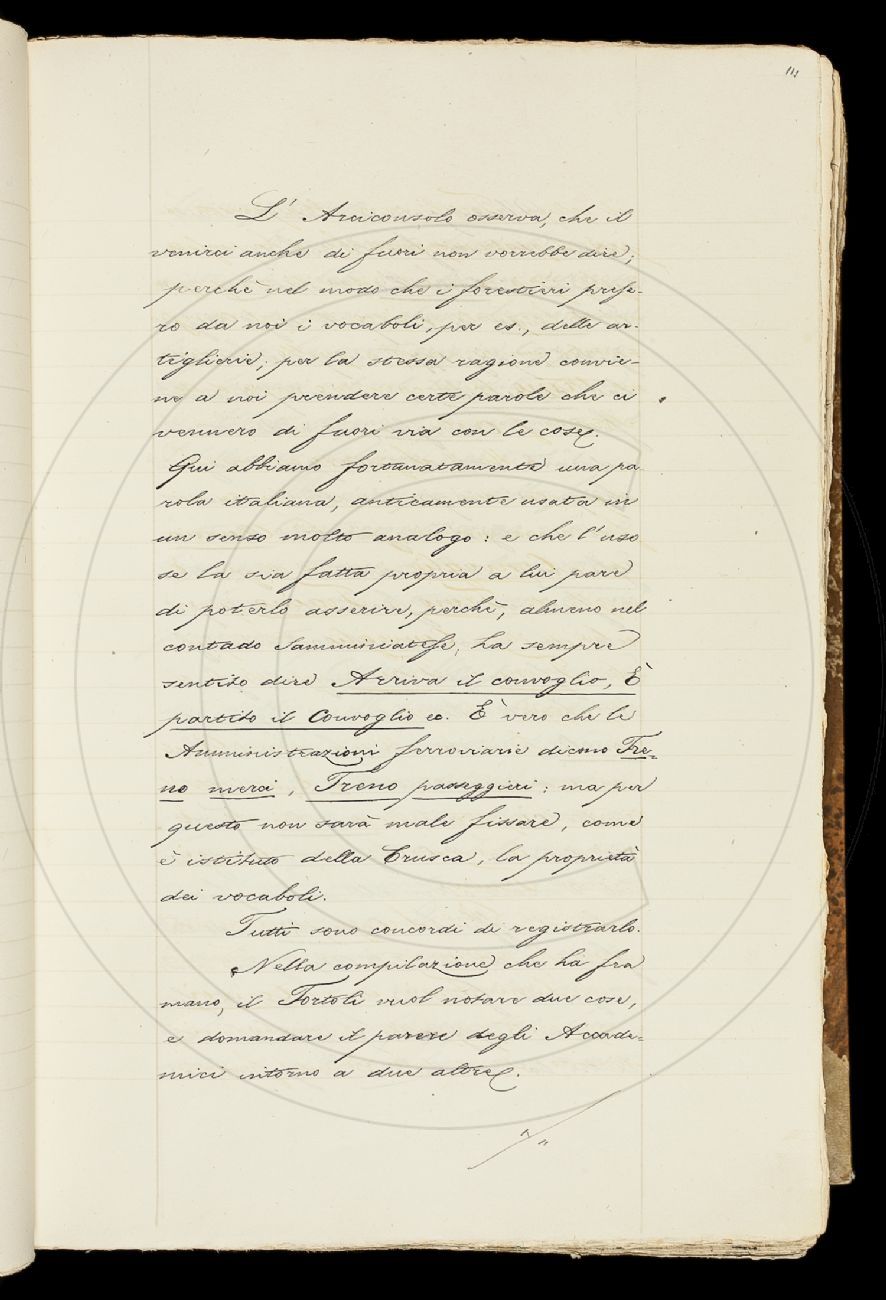 111
L' Arciconsolo osserva, che il
venirci anche di fuori non vorrebbe dire;
perchè nel modo che i forestieri prese-
ro da noi i vocaboli, per es., delle ar-
tiglierie, per la stessa ragione convie-
ne a noi prendere certe parole che ci
vennero di fuori via con le cose.
Qui abbiamo fortunatamente una pa
rola italiana, anticamente usata in
un senso molto analogo: e che l'uso
se la sia fatta propria a lui pare
di poterlo asserire, perchè, almeno nel
contado Samminiatese, ha sempre
sentito dire Arriva il convoglio, È
partito il Convoglio ec. È vero che le
Amministrazioni ferroviarie dicono Tre-
no merci, Treno passeggieri; ma per
questo non sarà male fissare, come
è istituto della Crusca, la proprietà
dei vocaboli.
Tutti sono concordi di registrarlo.
Nella compilazione che ha fra
mano, il Tortoli vuol notare due cose,
e domandare il parere degli Accade-
mici intorno a due altre.